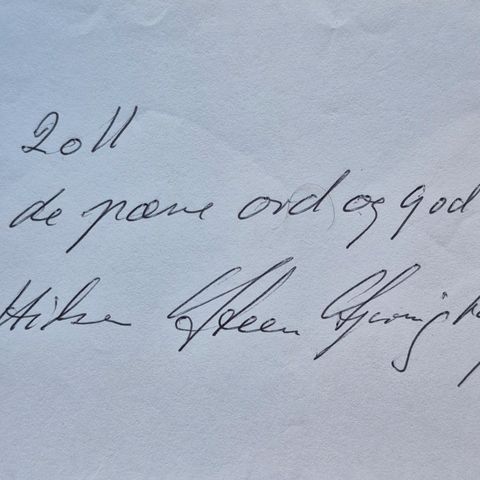 2011
de pæne ord og god
Hilsen Steen